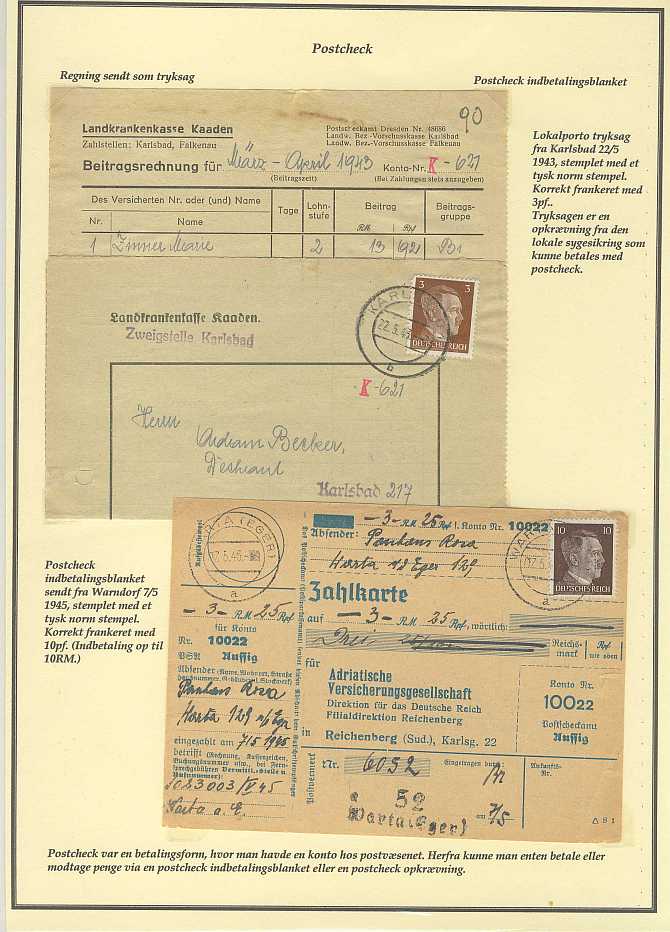 Postcheck
Regning sendt som tryksag
Postcheck indbetalingsblanket
90
Landkrankenkasse Kaaden
Zahlstellen: Karlsbad, Falkenau
Postscheckamt Dresden Nr. 48686
Landw. Bez.-Vorschusskasse Karlsbad
Landw. Bez.-Vorschusskasse Falkenau
Beitragsrechnung für März - April 1943
Konto-Nr. K - 621
(Beitragszeit)
(Bei Zahlungen stets anzugeben)
Des Versicherten Nr. oder (und) Name
Tage
Lohn-
stufe
Beitrag
Beitrags-
gruppe
Nr.
Name
RM
Rpf
1
Marie
2
13
92
Lokalporto tryksag
fra Karlsbad 22/5
1943, stemplet med et
tysk norm stempel.
Korrekt frankeret med
3pf..
Tryksagen er en
opkrævning fra den
lokale sygesikring som
kunne betales med
postcheck.
Landkrankenkasse Kaaden.
Zweigstelle Karlsbad
KARL
22.5.43
b
3
3
DEUTSCHES REICH
K-621
Herrn
Adam Becker,
Karlsbad 217
Postcheck
indbetalingsblanket
sendt fra Warndorf 7/5
1945, stemplet med et
tysk norm stempel.
Korrekt frankeret med
10pf. (Indbetaling op til
10RM.)
RTA (EGER)
a
-3- RM 25 Rpf
für Konto
Nr. 10022
PSA Aussig
Absender (Name, Wohnort, Straße
Pauhans Rosa
Warta 129 a/Eger
eingezahlt am 7/5 1945
betrifft (Rechnung, Kassenzeichen,
Warta a. E.
-3- RM 25 Rpf f. Konto Nr. 10022
Absender: Pauhans Rosa
Warta a/d Eger 129
WAR
a
10
10
DEUTSCHES REICH
Zahlkarte
auf -3- RM 25 Rpf, wörtlich:
Drei
Reichs-
mark
Rpf
wie oben
für
Adriatische
Versicherungsgesellschaft
Direktion für das Deutsche Reich
Filialdirektion Reichenberg
in Reichenberg (Sud.), Karlsg. 22
Konto Nr.
10022
Postscheckamt
Aussig
Postvermerk
Nr. 6052
Eingetragen durch:
Ankunfts-Nr.
52
Warta (Eger)
am 7/5
A 8 1
Postcheck var en betalingsform, hvor man havde en konto hos postvæsenet. Herfra kunne man enten betale eller
modtage penge via en postcheck indbetalingsblanket eller en postcheck opkrævning.